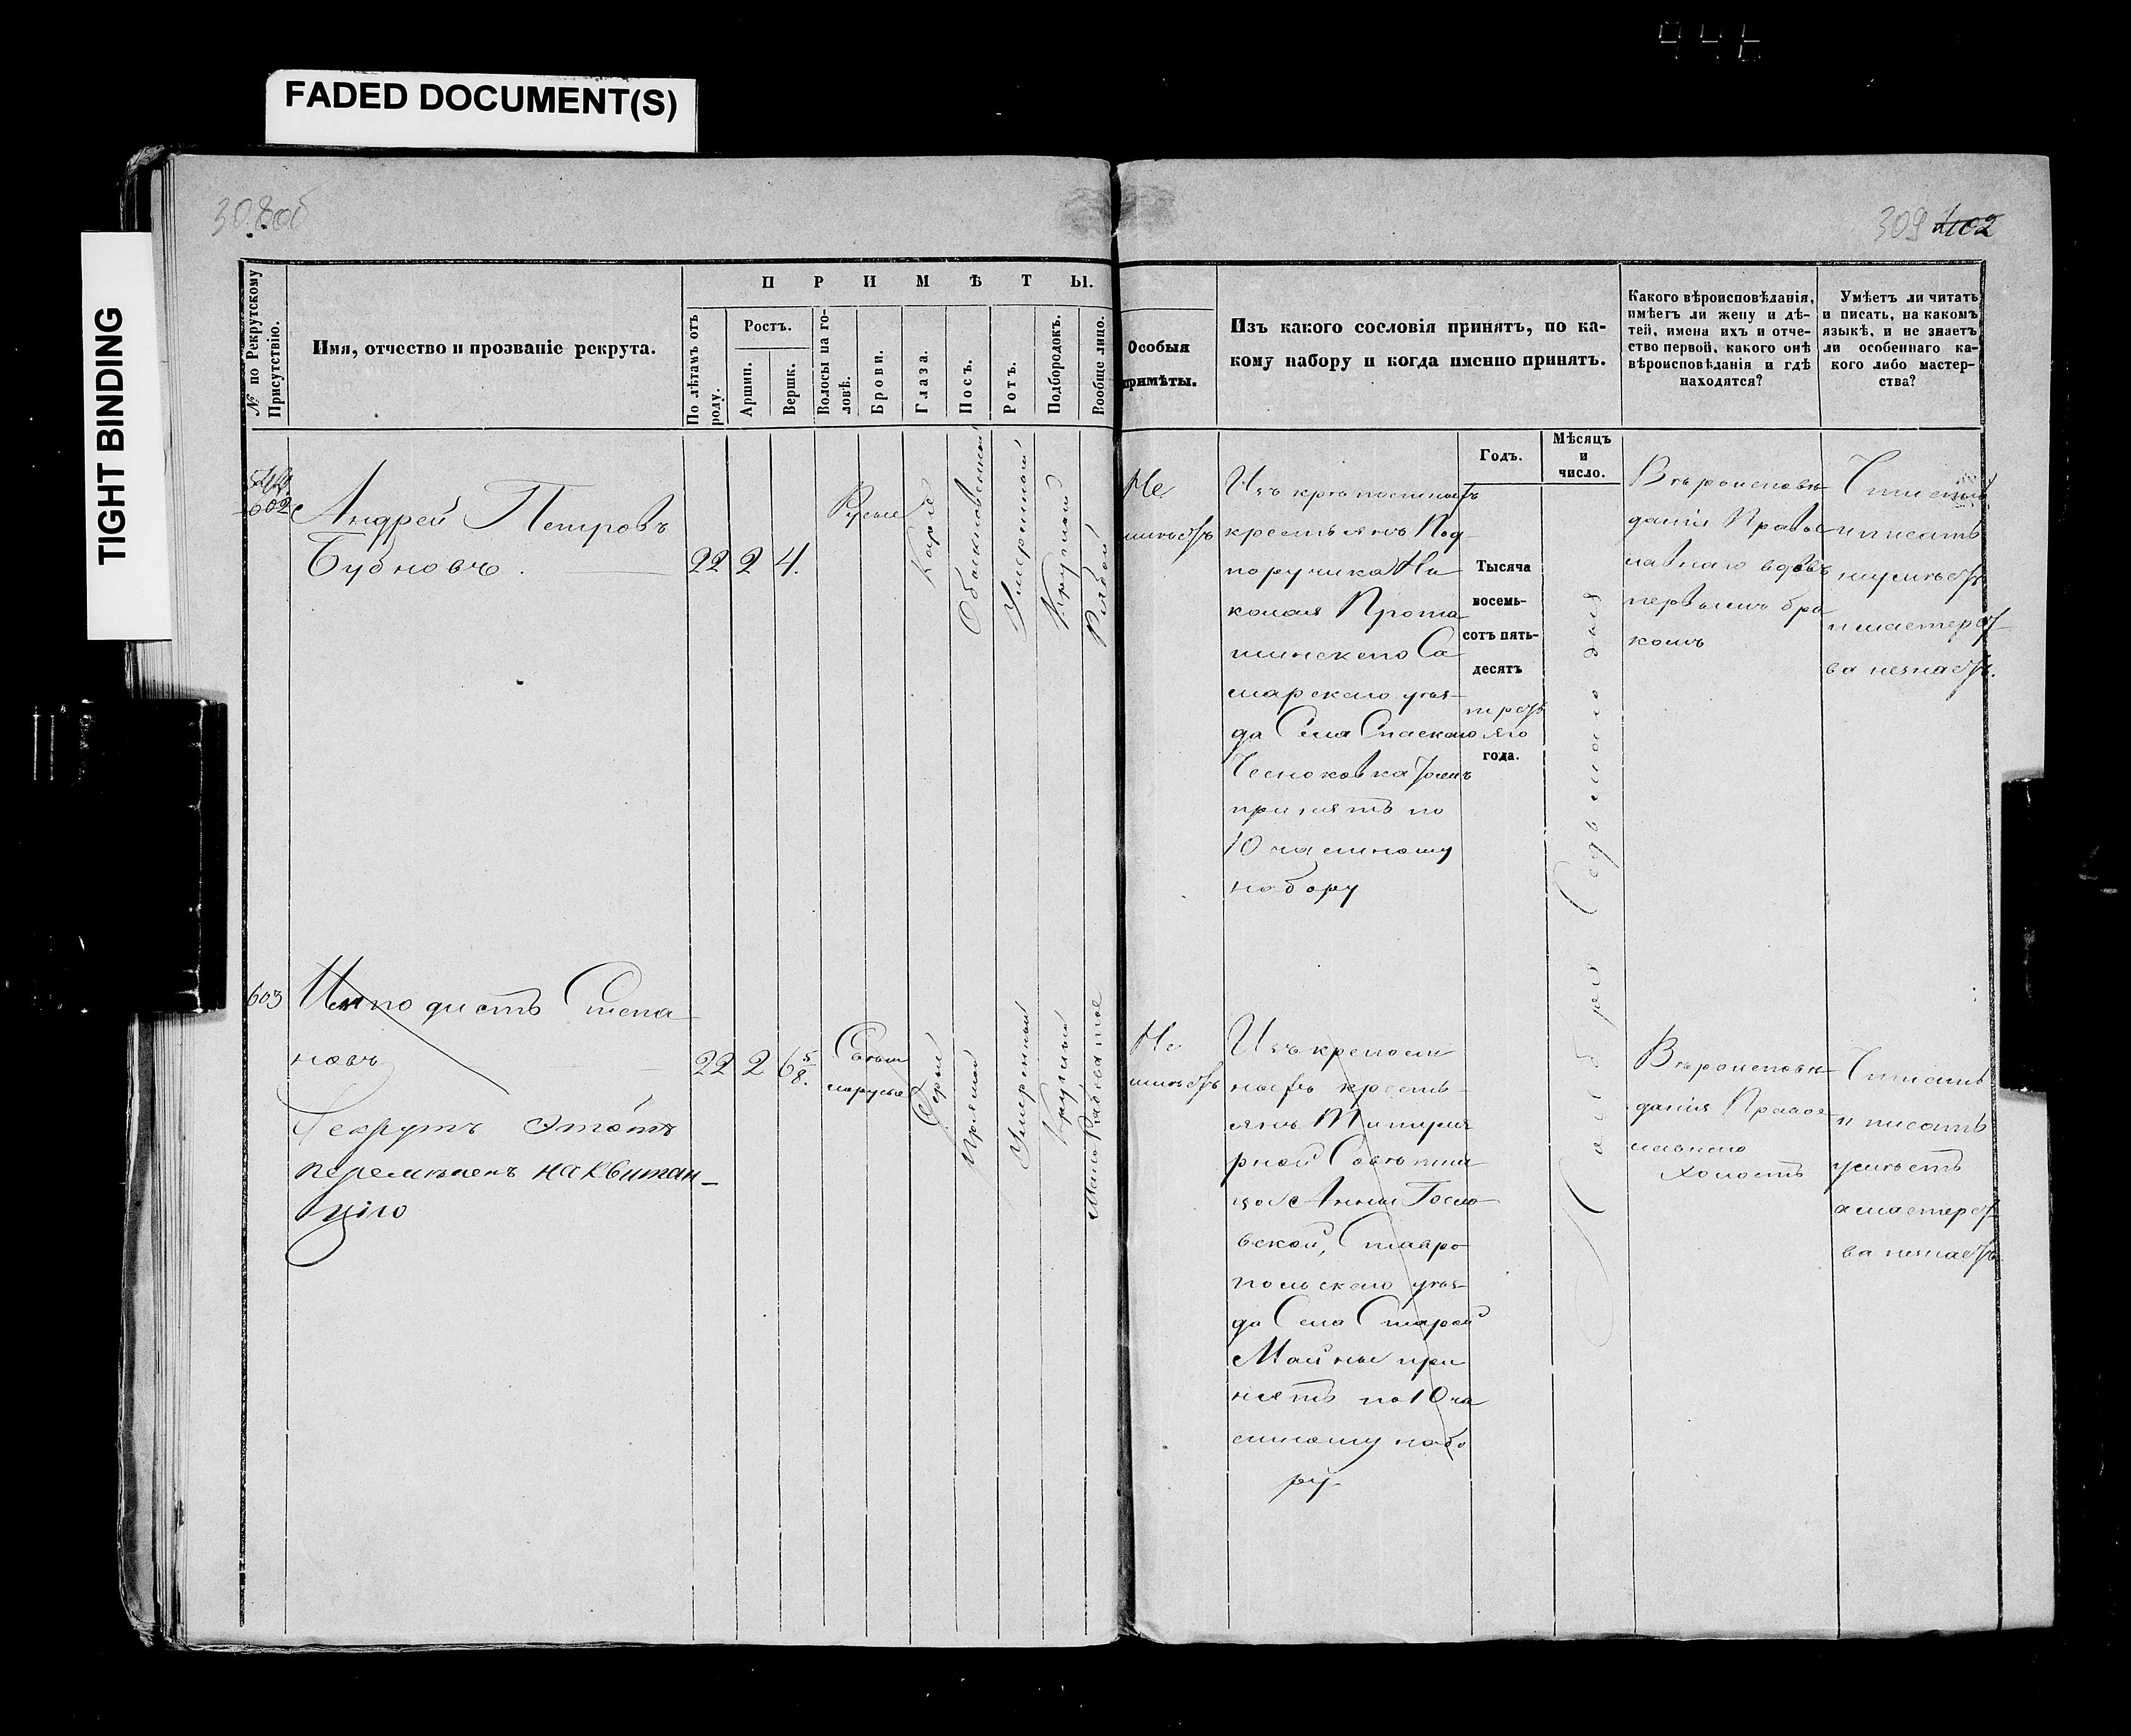 FADED DOCUMENT(S)
TIGHT BINDING
308об
309 402
№ по Рекрутскому Присутствію.
Имя, отчество и прозваніе рекрута.
ПРИМѢТЫ.
По лѣтамъ отъ роду.
Ростъ.
Аршин.
Вершк.
Волосы на головѣ.
Брови.
Глаза.
Носъ.
Ротъ.
Подбородокъ.
Вообще лицо.
Особыя
примѣты.
Изъ какого сословія принятъ, по ка-
кому набору и когда именно принятъ.
Годъ.
Мѣсяцъ
и
число.
Какого вѣроисповѣданія,
имѣетъ ли жену и дѣ-
тей, имена ихъ и отче-
ство первой, какого онѣ
вѣроисповѣданія и гдѣ
находятся?
Умѣетъ ли читать
и писать, на какомъ
языкѣ, и не знаетъ
ли особеннаго ка-
кого либо мастер-
ства?
602
Андрей Петровъ
Бубновъ.
22 2 4.
Русые
Каріе
Обыкновенный
Умеренный
Круглый
Рябой
Не
имѣетъ
Изъ крѣпостныхъ
крестьянъ Под
поручика Ни
колая
Са
марскаго уѣз-
да Села Спаскаго
Чесноковка тожъ
принятъ по
10 частному
набору
Тысяча
восемь-
сотъ пять-
десятъ
треть
яго
года.
Ноября Седьмаго дня
Вѣроисповѣ
данія Правос
лавнаго вдовъ
первымъ бра
комъ
Читать
и писать
неумѣетъ
и мастерст
ва незнаетъ.
603
Степа
новъ
Рекрутъ этотъ
перемѣненъ на квитан-
цію
22 2 6 5/8.
Свѣтл
орусые
Серый
Прямой
Умеренный
Круглый
Мало Рябоватое
Не
имѣетъ
Изъ крепост
ныхъ кресть
янъ Титуля
рной Совѣтни
цы Анны
вской, Ставро
польскаго уѣз-
да Села Старой
Майны при
нятъ по 10 ча
стному набо
ру.
Вѣроисповѣ
данія Правос
лавнаго
холостъ
Читать
и писать
умѣетъ
а мастерст
ва незнаетъ